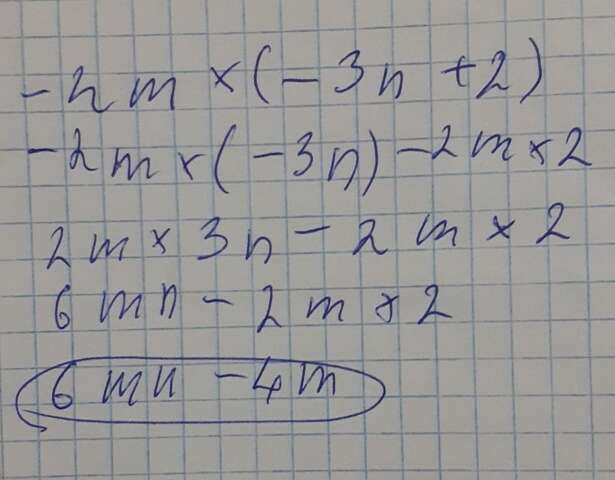 -2m×(-3n+2)
-2m×(-3n)-2m×2
2m×3n-2m×2
6mn-2m×2
6mn-4m